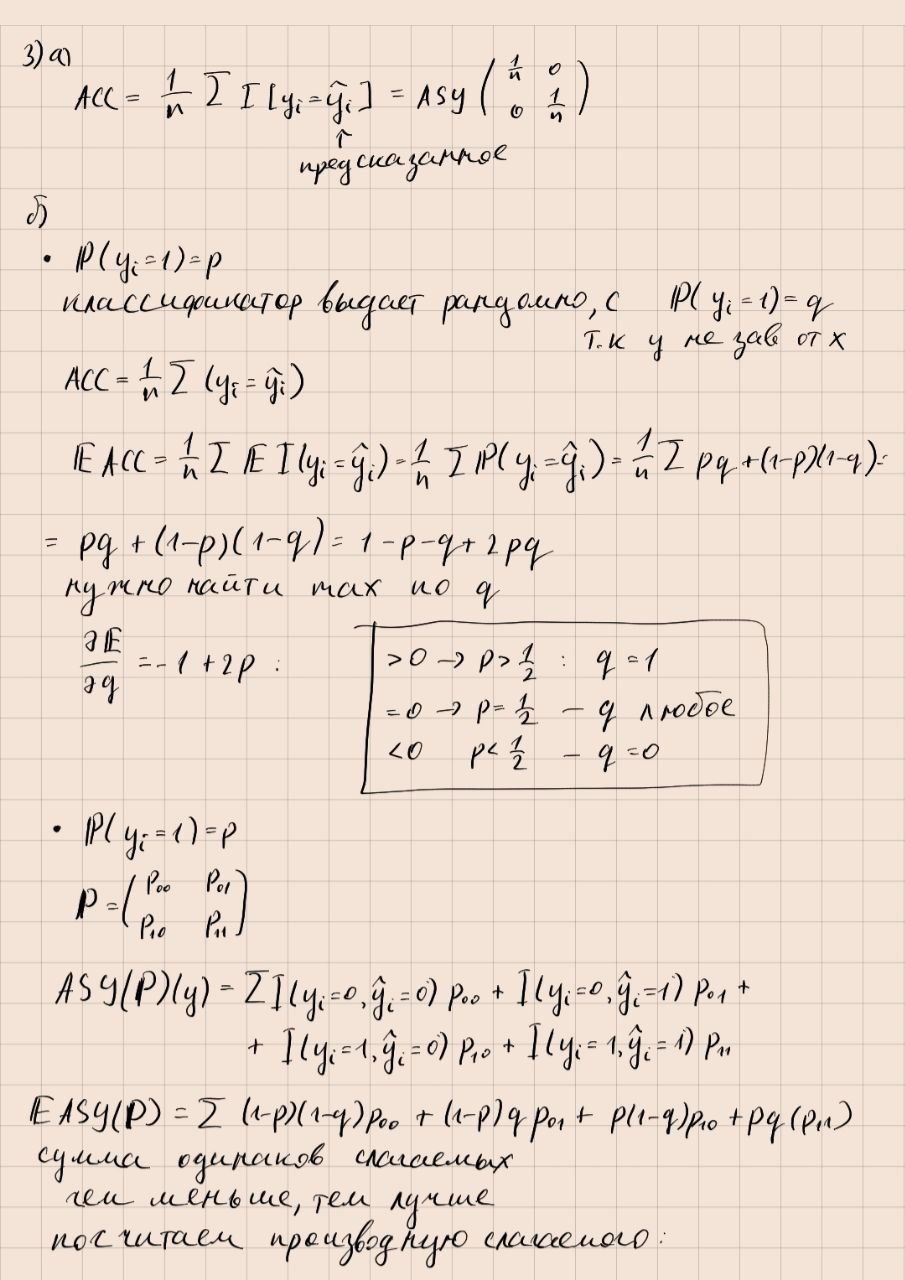 3) а)
ACC = 1/n Σ I [y_i = ŷ_i] = ASY ( 1/n 0
0 1/n )
↑
предсказанное
б)
• ℙ(y_i = 1) = p
классификатор выдает рандомно, с ℙ(y_i = 1) = q
т.к y не зав от x
ACC = 1/n Σ (y_i = ŷ_i)
𝔼 ACC = 1/n Σ 𝔼 I(y_i = ŷ_i) = 1/n Σ ℙ(y_i = ŷ_i) = 1/n Σ pq + (1-p)(1-q) =
= pq + (1-p)(1-q) = 1 - p - q + 2pq
нужно найти max по q
∂𝔼/∂q = -1 + 2p :
>0 → p > 1/2 : q = 1
=0 → p = 1/2 – q любое
<0 p < 1/2 – q = 0
• ℙ(y_i = 1) = p
P = ( p_00 p_01
p_10 p_11 )
ASY(P)(y) = Σ I(y_i=0, ŷ_i=0) p_00 + I(y_i=0, ŷ_i=1) p_01 +
+ I(y_i=1, ŷ_i=0) p_10 + I(y_i=1, ŷ_i=1) p_11
𝔼 ASY(P) = Σ (1-p)(1-q)p_00 + (1-p)q p_01 + p(1-q)p_10 + pq(p_11)
сумма одинаков слагаемых
чем меньше, тем лучше
посчитаем производную слагаемого: